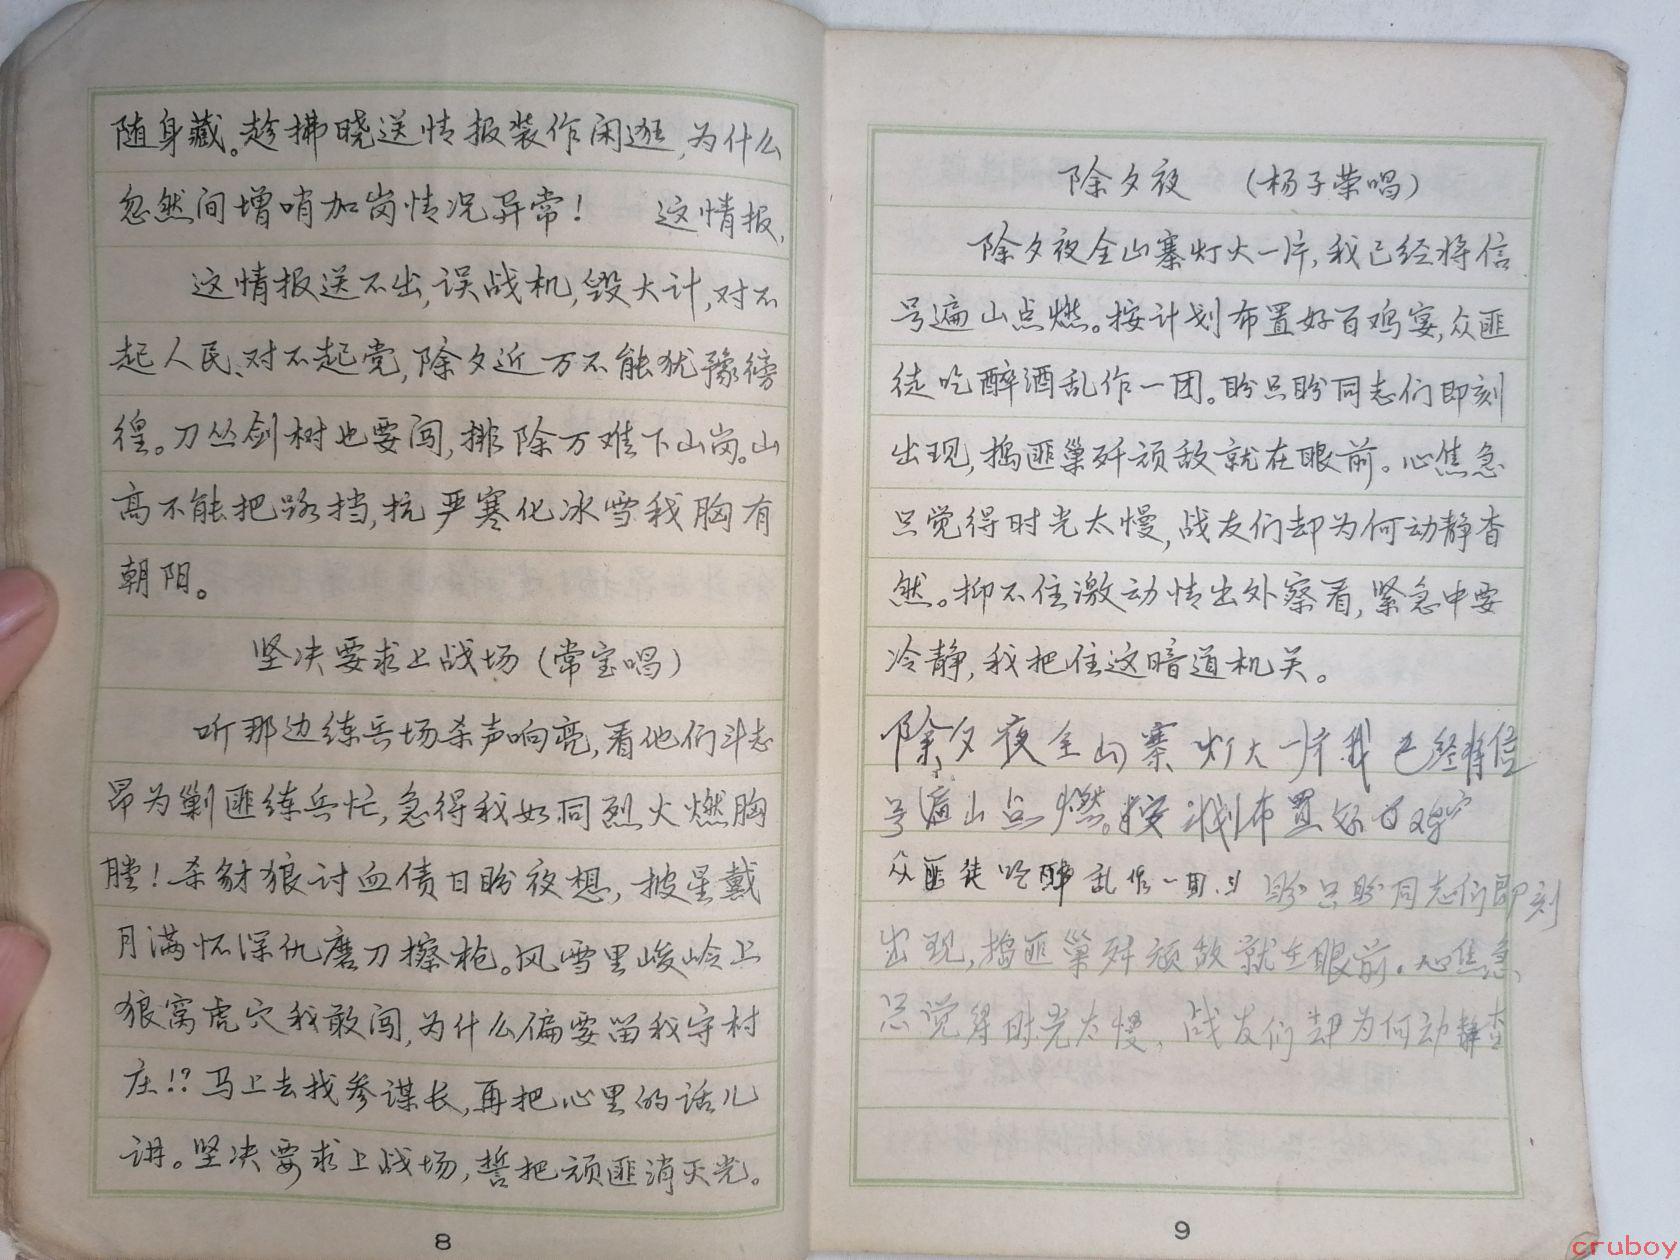 随身藏。趁拂晓送情报装作闲逛,为什么
忽然间增哨加岗情况异常!  这情报,
这情报送不出,误战机,毁大计,对不
起人民、对不起党,除夕近万不能犹豫徬
徨。刀丛剑树也要闯,排除万难下山岗。山
高不能把路挡,抗严寒化冰雪我胸有
朝阳。
坚决要求上战场(常宝唱)
听那边练兵场杀声响亮,看他们斗志
昂为剿匪练兵忙,急得我如同烈火燃胸
膛!杀豺狼讨血债日盼夜想,披星戴
月满怀深仇磨刀擦枪。风雪里峻岭上
狼窝虎穴我敢闯,为什么偏要留我守村
庄!?马上去找参谋长,再把心里的话儿
讲。坚决要求上战场,誓把顽匪消灭光。
8
除夕夜 (杨子荣唱)
除夕夜全山寨灯火一片,我已经将信
号遍山点燃。按计划布置好百鸡宴,众匪
徒吃醉酒乱作一团。盼只盼同志们即刻
出现,捣匪巢歼顽敌就在眼前。心焦急
只觉得时光太慢,战友们却为何动静杳
然。抑不住激动情出外察看,紧急中要
冷静,我把住这暗道机关。
除夕夜全山寨灯火一片我已经将信
号遍山点燃。按计划布置好百鸡宴
众匪徒吃醉乱作一团 盼只盼同志们即刻
出现,捣匪巢歼顽敌就在眼前.心焦急
只觉得时光太慢,战友们却为何动静杳
9
cruboy